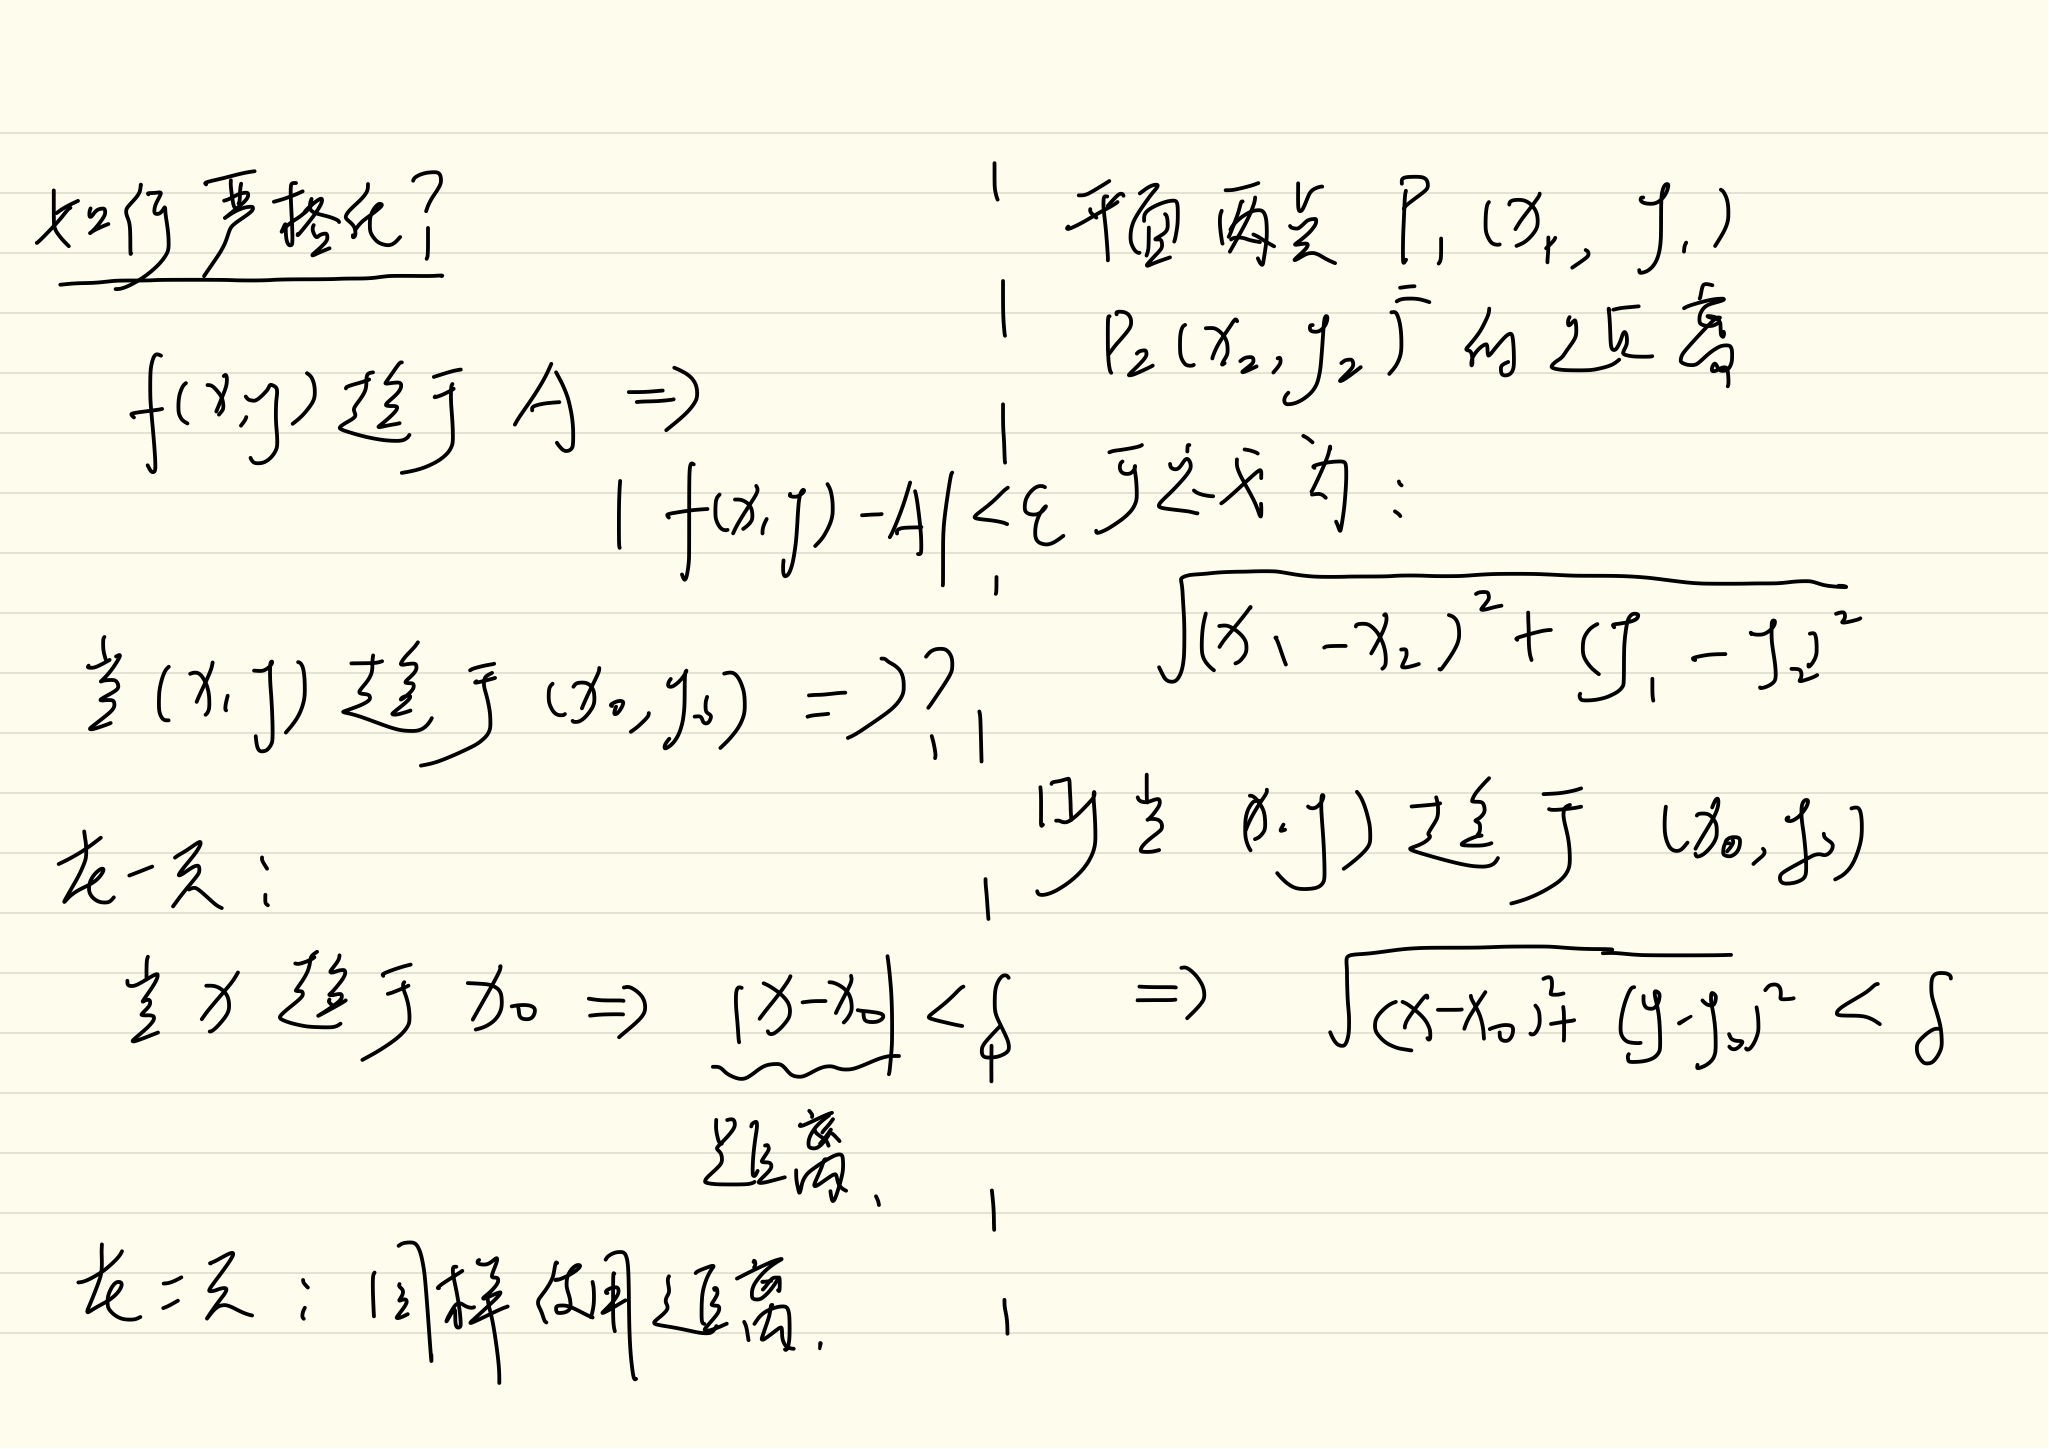 如何严格化?
f(x,y) 趋于 A ⇒
|f(x,y)-A|<ε
当(x,y) 趋于 (x₀,y₀) ⇒?
在一元:
当 x 趋于 x₀ ⇒ |x-x₀|<δ
距离.
在二元: 同样使用距离.
平面两点 P₁(x₁, y₁)
P₂(x₂,y₂) 的距离
定义为:
√((x₁-x₂)²+(y₁-y₂)²
则当 (x,y) 趋于 (x₀,y₀)
⇒ √((x-x₀)²+(y-y₀)²) < δ